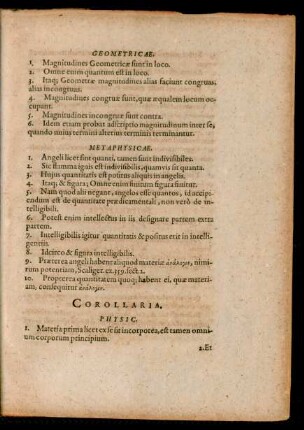 GEOMETRICAE.
1. Magnitudines Geometricæ sunt in loco.
2. Omne enim quantum est in loco.
3. Itaq; Geometræ magnitudines alias faciunt congruas,
alias incongruas.
4. Magnitudines congruæ sunt, quæ æqualem locum oc-
cupant.
5. Magnitudines incongruæ sunt contra.
6. Idem etiam probat adscriptio magnitudinum inter se,
quando unius termini alterius terminis terminantur.
METAPHYSICAE.
1. Angeli licet sint quanti, tamen sunt indivisibiles.
2. Sic flamma ignis est indivisibilis, quamvis sit quanta.
3. Hujus quantitatis est positus aliquis in angelis.
4. Itaq; & figura; Omne enim finitum figura finitur.
5. Nam quod alii negant, angelos esse quantos, id accipi-
endum est de quantitate prædicamentali, non verò de in-
telligibili.
6. Potest enim intellectus in iis designare partem extra
partem.
7. Intelligibilis igitur quantitatis & positus erit in intelli-
gentiis.
8. Idcirco & figura intelligibilis.
9. Præterea angeli habent aliquod materiæ ἀνάλογον, ni-
mirum potentiam, Scaliger. ex. 359. sect. 2.
10. Propterea quantitatem quoq; habent ei, quæ materi-
am, consequitur ἀνάλογον.
COROLLARIA.
PHYSIC.
1. Materia prima licet ex se sit incorporea, est tamen omni-
um corporum principium.
2. Et